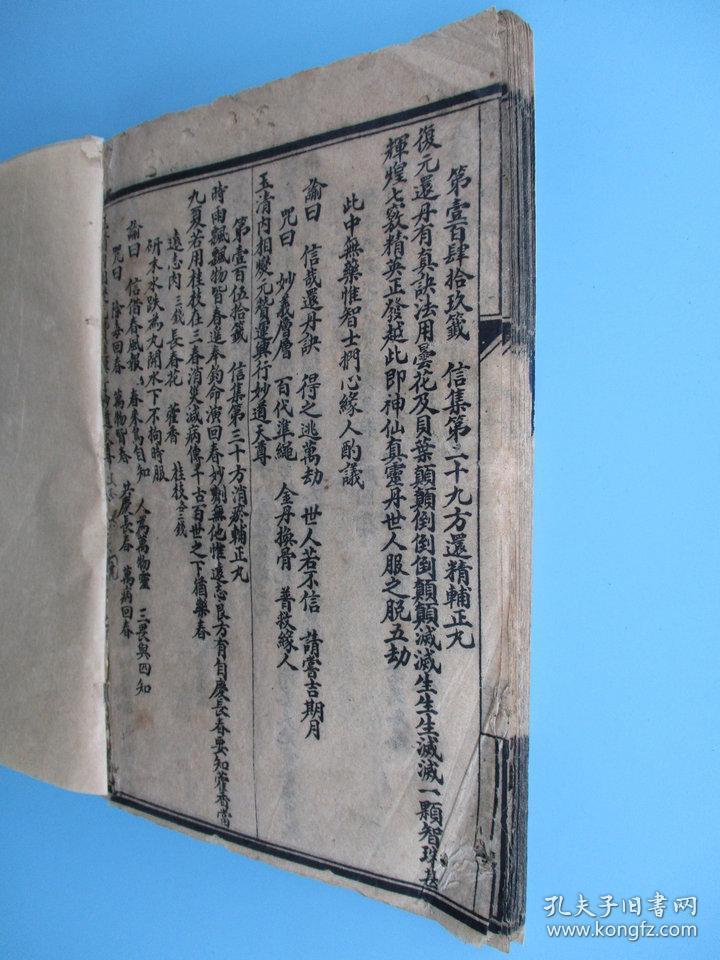 第壹百肆拾玖籤 信集第二十九方還精輔正丸
復元還丹有真訣法用曇花及貝葉顛顛倒倒倒顛顛滅滅生生生滅滅一顆智珠甚
輝煌七竅精英正發越此即神仙真靈丹世人服之脫五劫
此中無藥惟智士捫心緣人酌議
諭曰 信哉還丹訣 得之逃萬劫 世人若不信 請嘗吉期月
咒曰 妙義層層 百代準繩 金丹換骨 普救緣人
玉清內相燮元贊運興行妙道天尊
第壹百伍拾籤 信集第三十方消瘀輔正丸
時雨飄飄物皆春進奉鈞命演回春妙劑無他惟遠志良方有自慶長春要知藿香當
九夏若用桂枝在三春消災減病傳千古百世之下猶樂春
遠志肉三錢 長春花 藿香 桂枝各三錢
研末水跌為丸開水下不拘時服
諭曰 信借春風報 春來萬自知 人為萬物靈 三畏與四知
咒曰 除毒回春 萬物皆春 共慶長春 萬病回春
孔夫子旧书网
www.kongfz.com